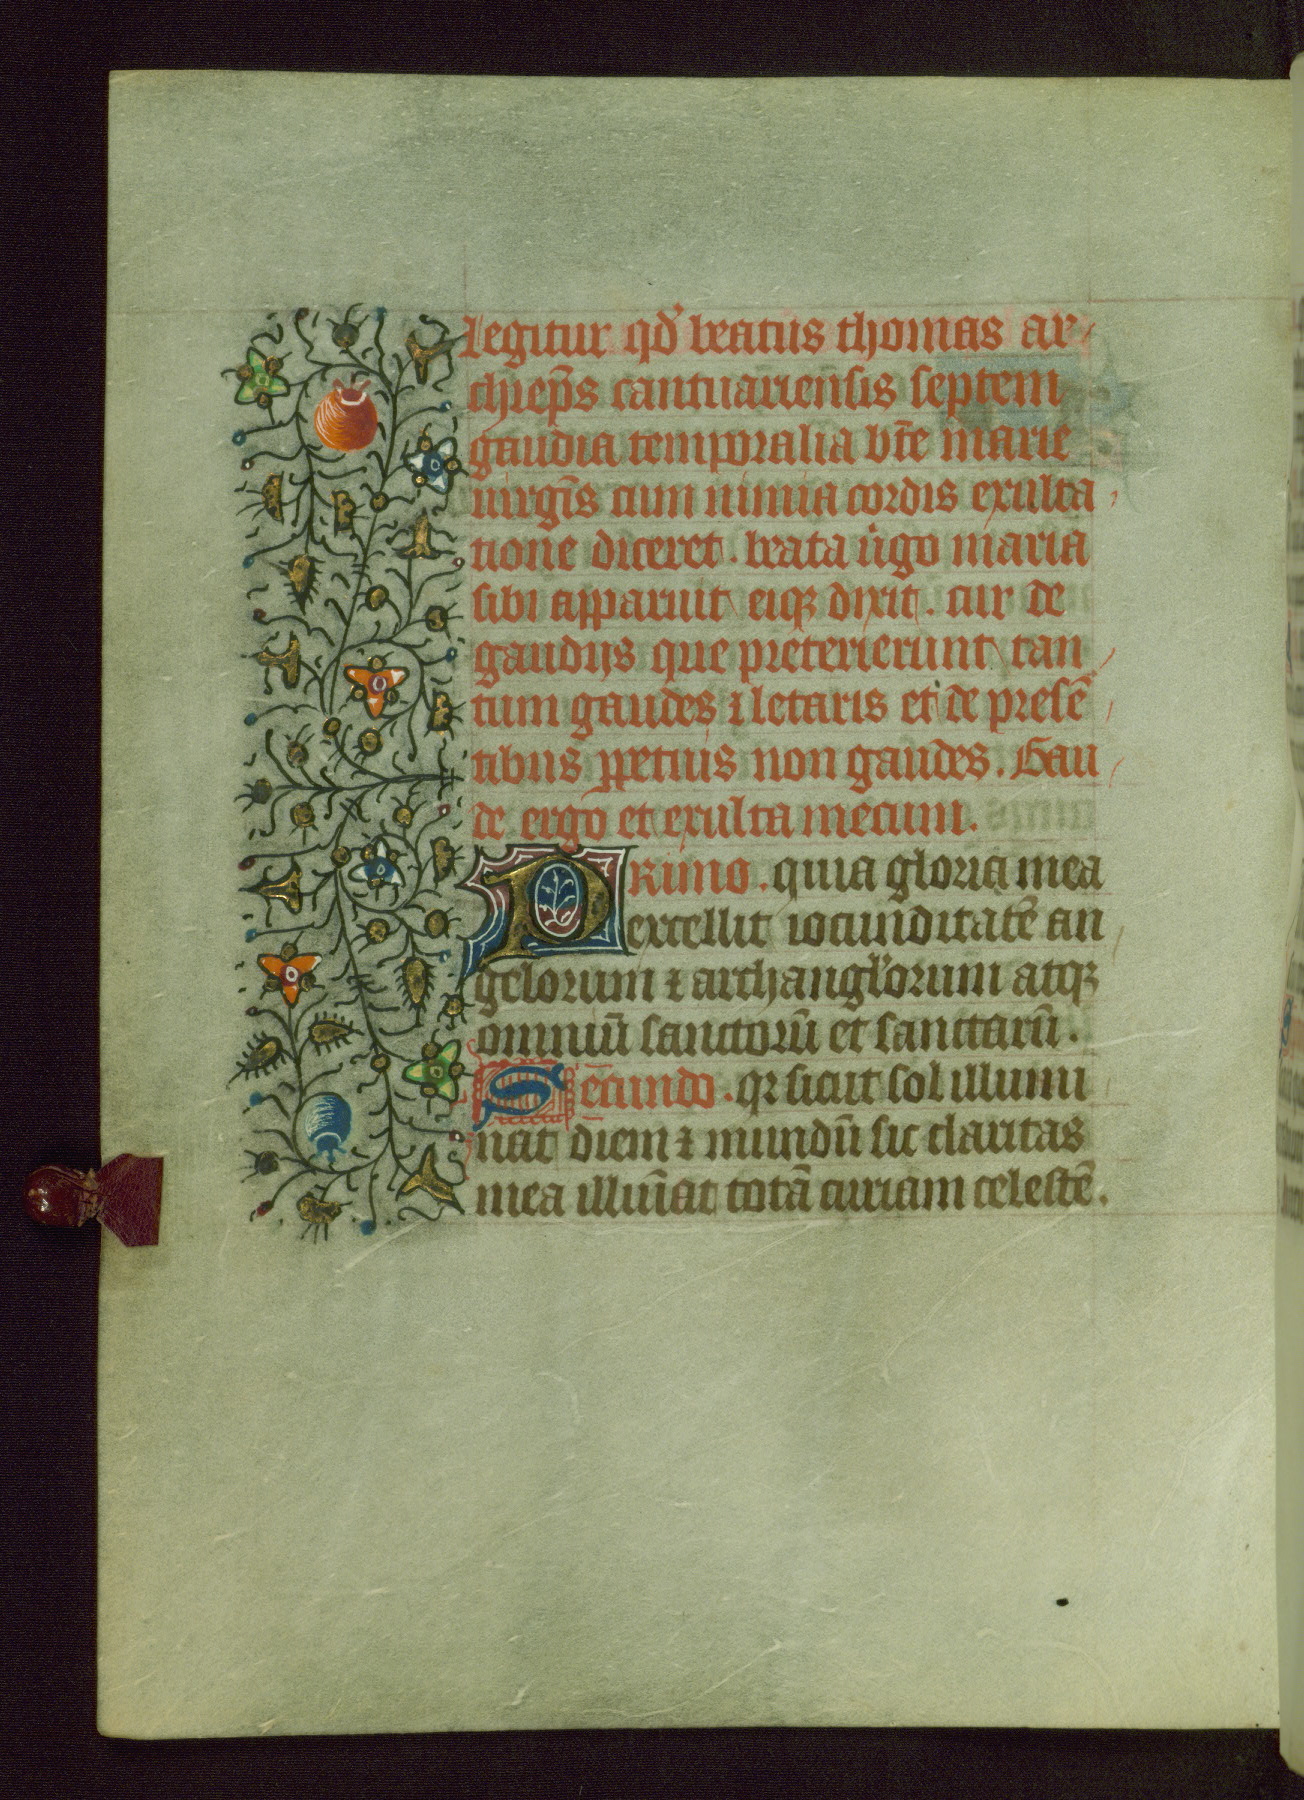 Legitur qd̄ beatus thomas ar
chiep̄s cantuarien̄sis septem
gaudia temporalia bt̄e marie
uirgīs cum nimia cordis exulta
tione diceret. beata u̇go maria
sibi apparuit eiqꝫ dixit. cur de
gaudijs que preterierunt tan
tum gaudes ⁊ letaris et de presē
tibus ꝑpetuis non gaudes. Gau
de ergo et exulta mecum.
PRimo. quia gloria mea
excellit iocunditatē an
gelorum ⁊ archangl̓orum atqꝫ
omniū sanctorū et sanctarū.
Secundo. qꝛ sicut sol illumi
nat diem ⁊ mundū sic claritas
mea illuīat totā curiam celestē.